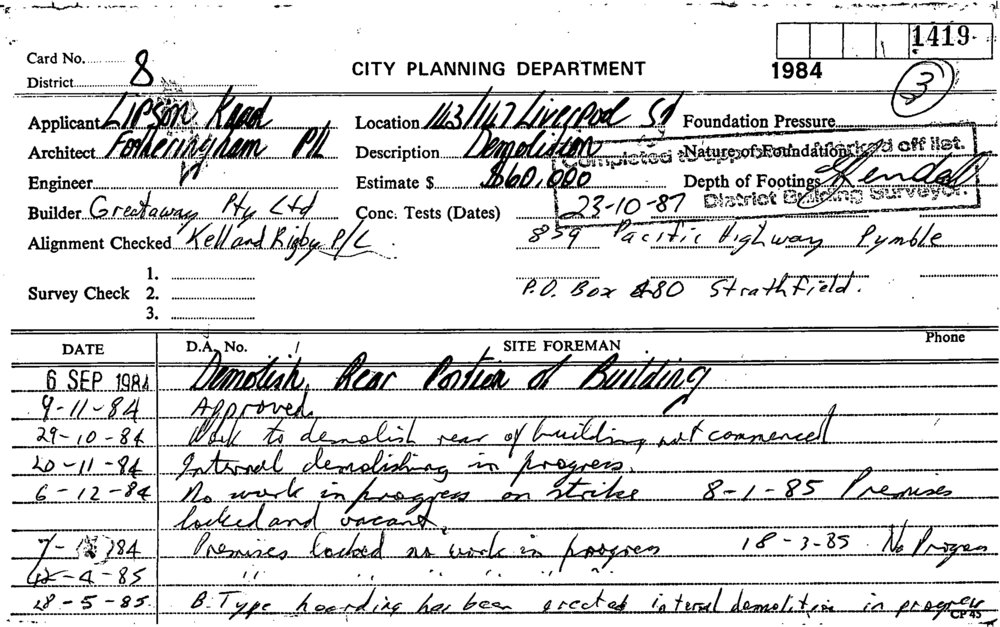 1419
Card No. 8
District
CITY PLANNING DEPARTMENT
1984
3
Applicant Lipson Kaad
Location 143/147 Liverpool St
Foundation Pressure
Architect Fotheringham P/L
Description Demolition
Nature of Foundation
Completed Marked off list.
Engineer
Estimate $ $60,000
Depth of Footings Kendall
Builder Greetaway Pty Ltd
Conc. Tests (Dates) 23-10-87
District Building Surveyor.
Alignment Checked Kell and Rigby P/L
859 Pacific Highway Pymble
1.
Survey Check 2.
P.O. Box 480 Strathfield.
3.
DATE D.A. No. SITE FOREMAN Phone
6 SEP 1984 Demolish Rear Portion of Building
9-11-84 Approved.
29-10-84 Work to demolish rear of building not commenced
20-11-84 Internal demolishing in progress.
6-12-84 No work in progress on strike 8-1-85 Premises
locked and vacant.
7- 84 Premises locked no work in progress 18-3-85 No Progress
12-4-85 " " " " " "
28-5-85. B. Type hoarding has been erected internal demolition in progress
CP 45